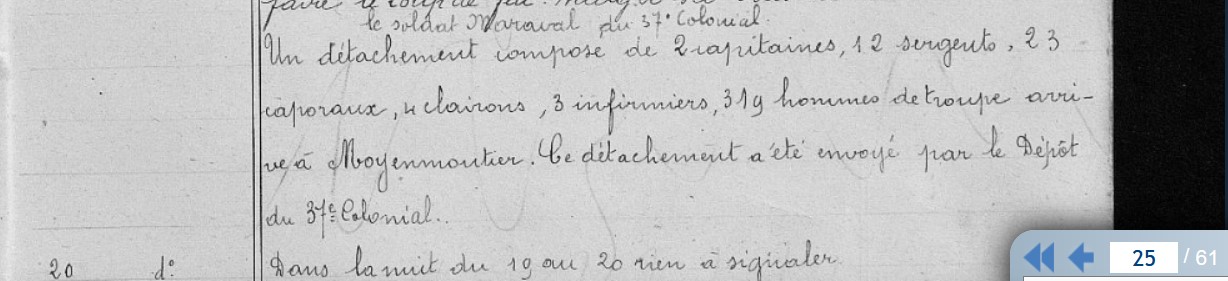 le soldat Maraval du 37e Colonial.
Un détachement composé de 2 capitaines, 12 sergents, 23
caporaux, 4 clairons, 3 infirmiers, 319 hommes de troupe arri-
ve à Moyenmoutier. Ce détachement a été envoyé par le Dépôt
du 37e Colonial..
20 do Dans la nuit du 19 au 20 rien à signaler
25 / 61